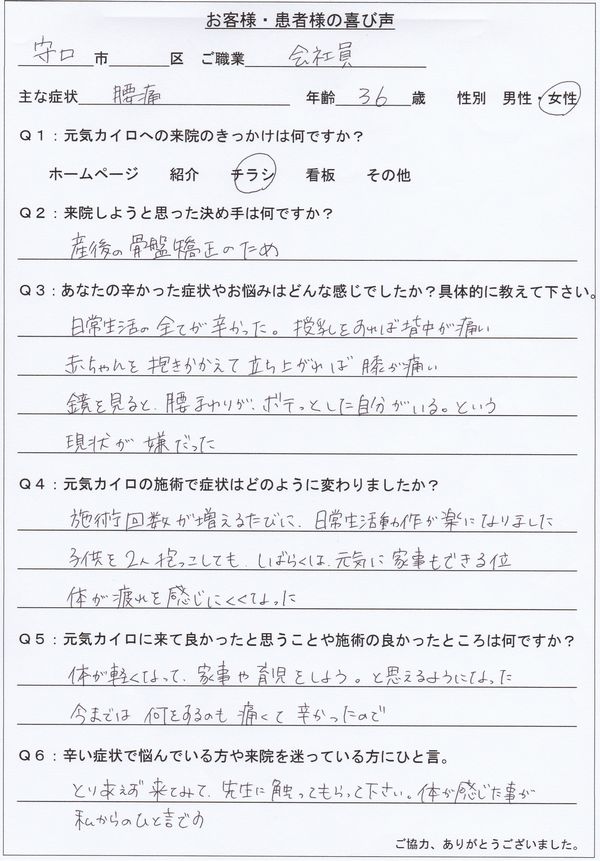 お客様・患者様の喜び声
守口 市 区 ご職業 会社員
主な症状 腰痛 年齢 36 歳 性別 男性・女性
Q1：元気カイロへの来院のきっかけは何ですか？
ホームページ 紹介 チラシ 看板 その他
Q2：来院しようと思った決め手は何ですか？
産後の骨盤矯正のため
Q3：あなたの辛かった症状やお悩みはどんな感じでしたか？具体的に教えて下さい。
日常生活の全てが辛かった。授乳をあれば背中が痛い
赤ちゃんを抱きかかえて立ち上がれば膝が痛い
鏡を見ると、腰まわりが、ボテっとした自分がいる。という
現状が嫌だった
Q4：元気カイロの施術で症状はどのように変わりましたか？
施術回数が増えるたびに、日常生活動作が楽になりました
子供を2人抱っこしても、しばらくは、元気に家事もできる位
体が疲れを感じにくくなった
Q5：元気カイロに来て良かったと思うことや施術の良かったところは何ですか？
体が軽くなって、家事や育児をしよう。と思えるようになった
今までは何をするのも痛くて辛かったので
Q6：辛い症状で悩んでいる方や来院を迷っている方にひと言。
とりあえず来てみて、先生に触ってもらって下さい。体が感じた事が
私からのひと言です
ご協力、ありがとうございました。